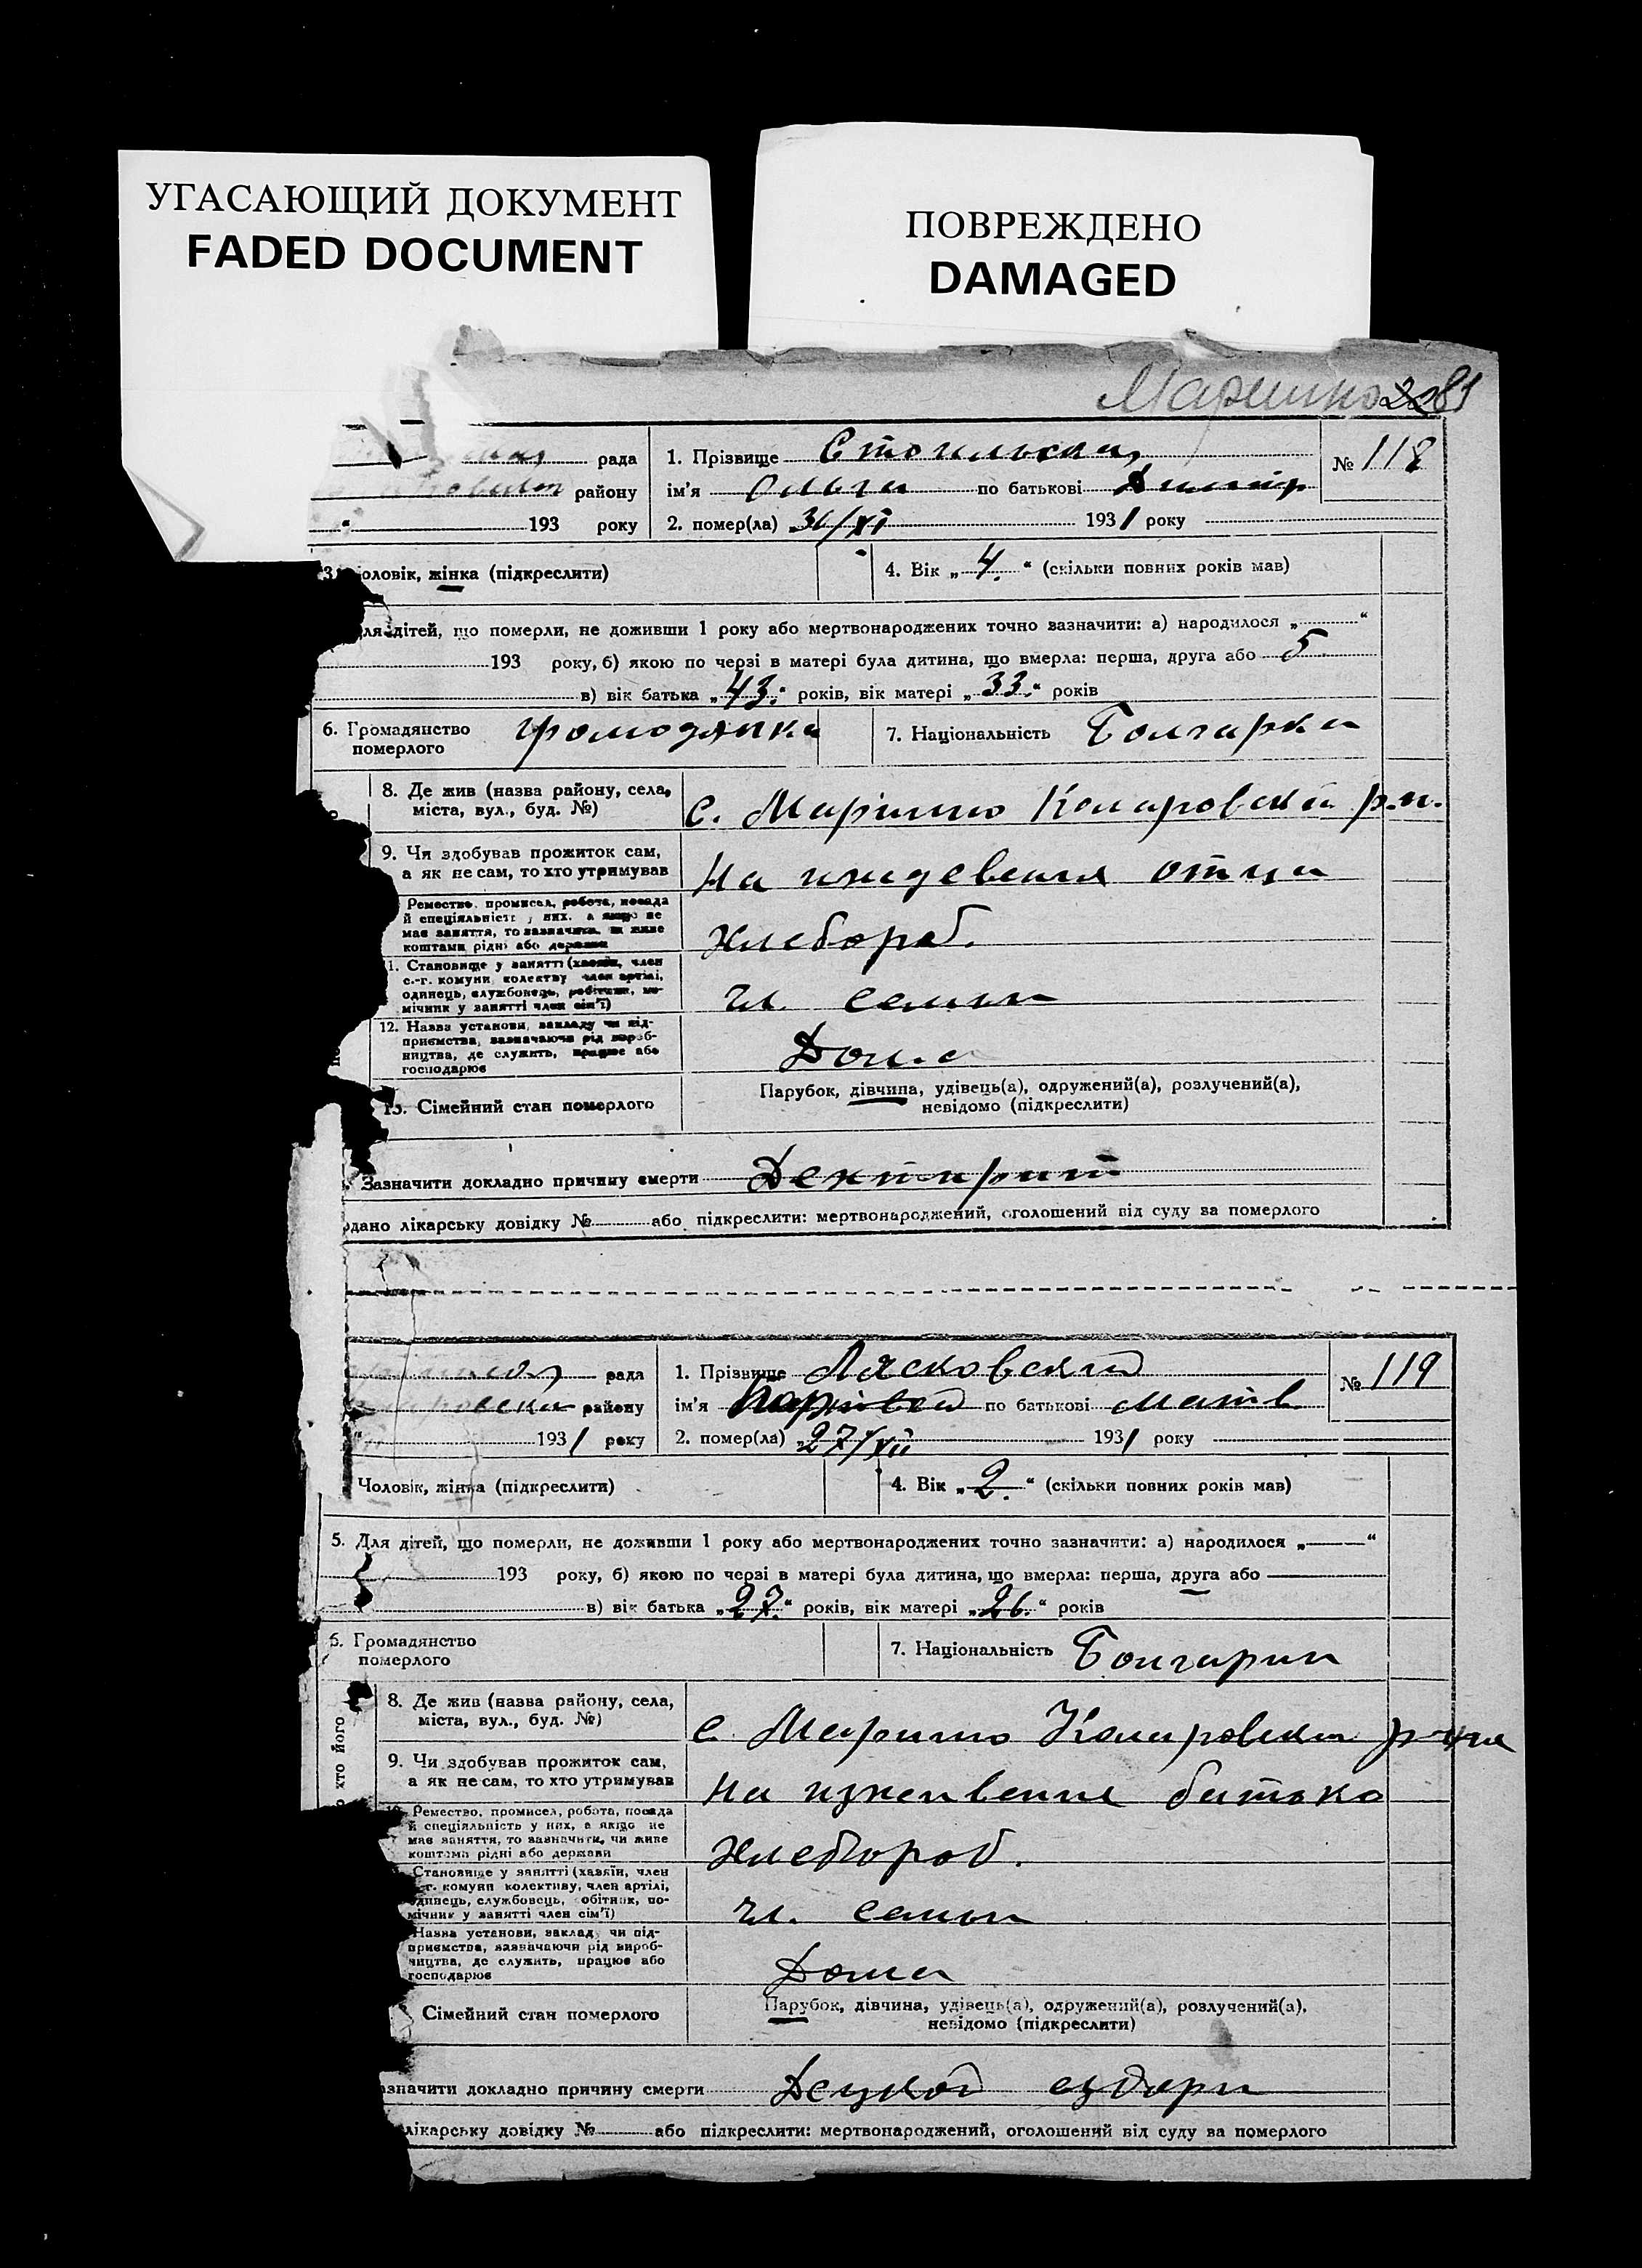 УГАСАЮЩИЙ ДОКУМЕНТ
FADED DOCUMENT
ПОВРЕЖДЕНО
DAMAGED
81
рада
району
193 року
1. Прізвище
№ 118
ім'я Ольга по батькові Дмитр
2. помер(ла) „ /XI 1931 року
оловік, жінка (підкреслити)
4. Вік „4.“ (скільки повних років мав)
ля дітей, що померли, не доживши 1 року або мертвонароджених точно зазначити: а) народилося „ “
193 року, б) якою по черзі в матері була дитина, що вмерла: перша, друга або 5
в) вік батька „43.“ років, вік матері „33.“ років
6. Громадянство померлого громодянка
7. Національність Болгарка
8. Де жив (назва району, села,
міста, вул., буд. №)
с. Маріино Коларовски р.н.
9. Чи здобував прожиток сам,
а як не сам, то хто утримував
На иждевения отца
Ремество, промисел, робота, посада
й спеціяльність у них, а якщо не
має заняття, то зазначити, чи живе
коштами рідні або держави
хлебороб.
1. Становище у занятті (хазяїн, член
с.-г. комуни, колективу член артілі,
одинець, службовець, робітник, по-
мічник у занятті член сім'ї)
чл. семьи
12. Назва установи, закладу чи під-
приємства, зазначаючи рід вироб-
ництва, де служить, працює або
господарює
Дома
13. Сімейний стан померлого
Парубок, дівчина, удівець(а), одружений(а), розлучений(а),
невідомо (підкреслити)
Зазначити докладно причину смерти
дано лікарську довідку № або підкреслити: мертвонароджений, оголошений від суду за померлого
рада
району
1931 року
1. Прізвище Лясковский
№ 119
ім'я по батькові Матів
2. помер(ла) „27/XII 1931 року
Чоловік, жінка (підкреслити)
4. Вік „2.“ (скільки повних років мав)
5. Для дітей, що померли, не доживши 1 року або мертвонароджених точно зазначити: а) народилося „ “
193 року, б) якою по черзі в матері була дитина, що вмерла: перша, друга або
в) вік батька „27.“ років, вік матері „26.“ років
6. Громадянство померлого
7. Національність Болгарин
хто його
8. Де жив (назва району, села,
міста, вул., буд. №)
с. Марино Коларовски
9. Чи здобував прожиток сам,
а як не сам, то хто утримував
На батько
Ремество, промисел, робота, посада
й спеціяльність у них, а якщо не
має заняття, то зазначити, чи живе
коштами рідні або держави
хлебороб.
Становище у занятті (хазяїн, член
г. комуни колективу, член артілі,
одинець, службовець, обітник, по-
мічник у занятті член сім'ї)
чл. семьи
Назва установи, заклад чи під-
приємства, зазначаючи рід вироб-
ництва, де служить, працює або
господарює
Дома
Сімейний стан померлого
Парубок, дівчина, удівець(а), одружений(а), розлучений(а),
невідомо (підкреслити)
значити докладно причину смерти
лікарську довідку № або підкреслити: мертвонароджений, оголошений від суду за померлого